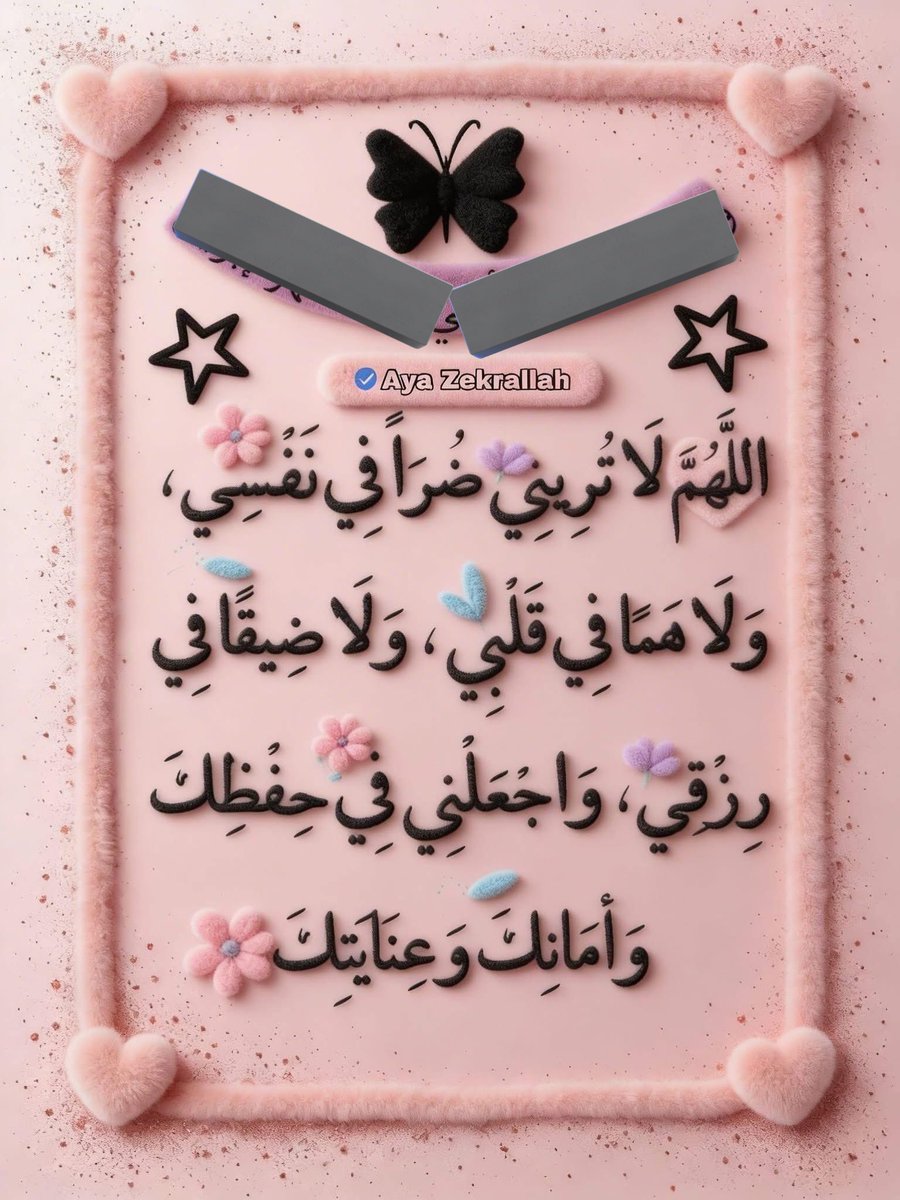 Aya Zekrallah
اللَّهُمَّ لَا تُرِينِي ضُرَاً فِي نَفْسِي،
وَلَا هَمًا فِي قَلْبِي، وَلَا ضِيقًا فِي
رِزْقِي، وَاجْعَلْنِي فِي حِفْظِكَ
وَأمَانِكَ وَعِنَايَتِكَ